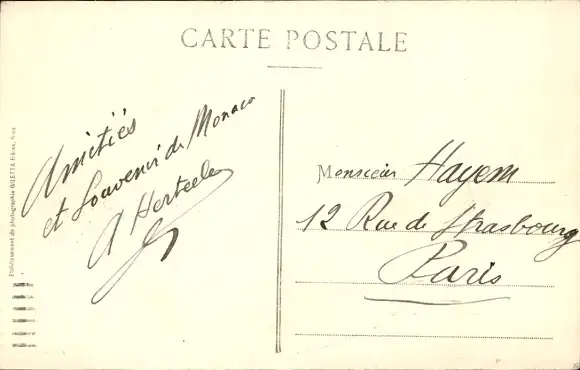 CARTE POSTALE
Amitiés
et Souvenir de Monaco
A Herteele
Monsieur Hayem
12 Rue de Strasbourg
Paris
Etablissement de photographie GILETTA frères, Nice